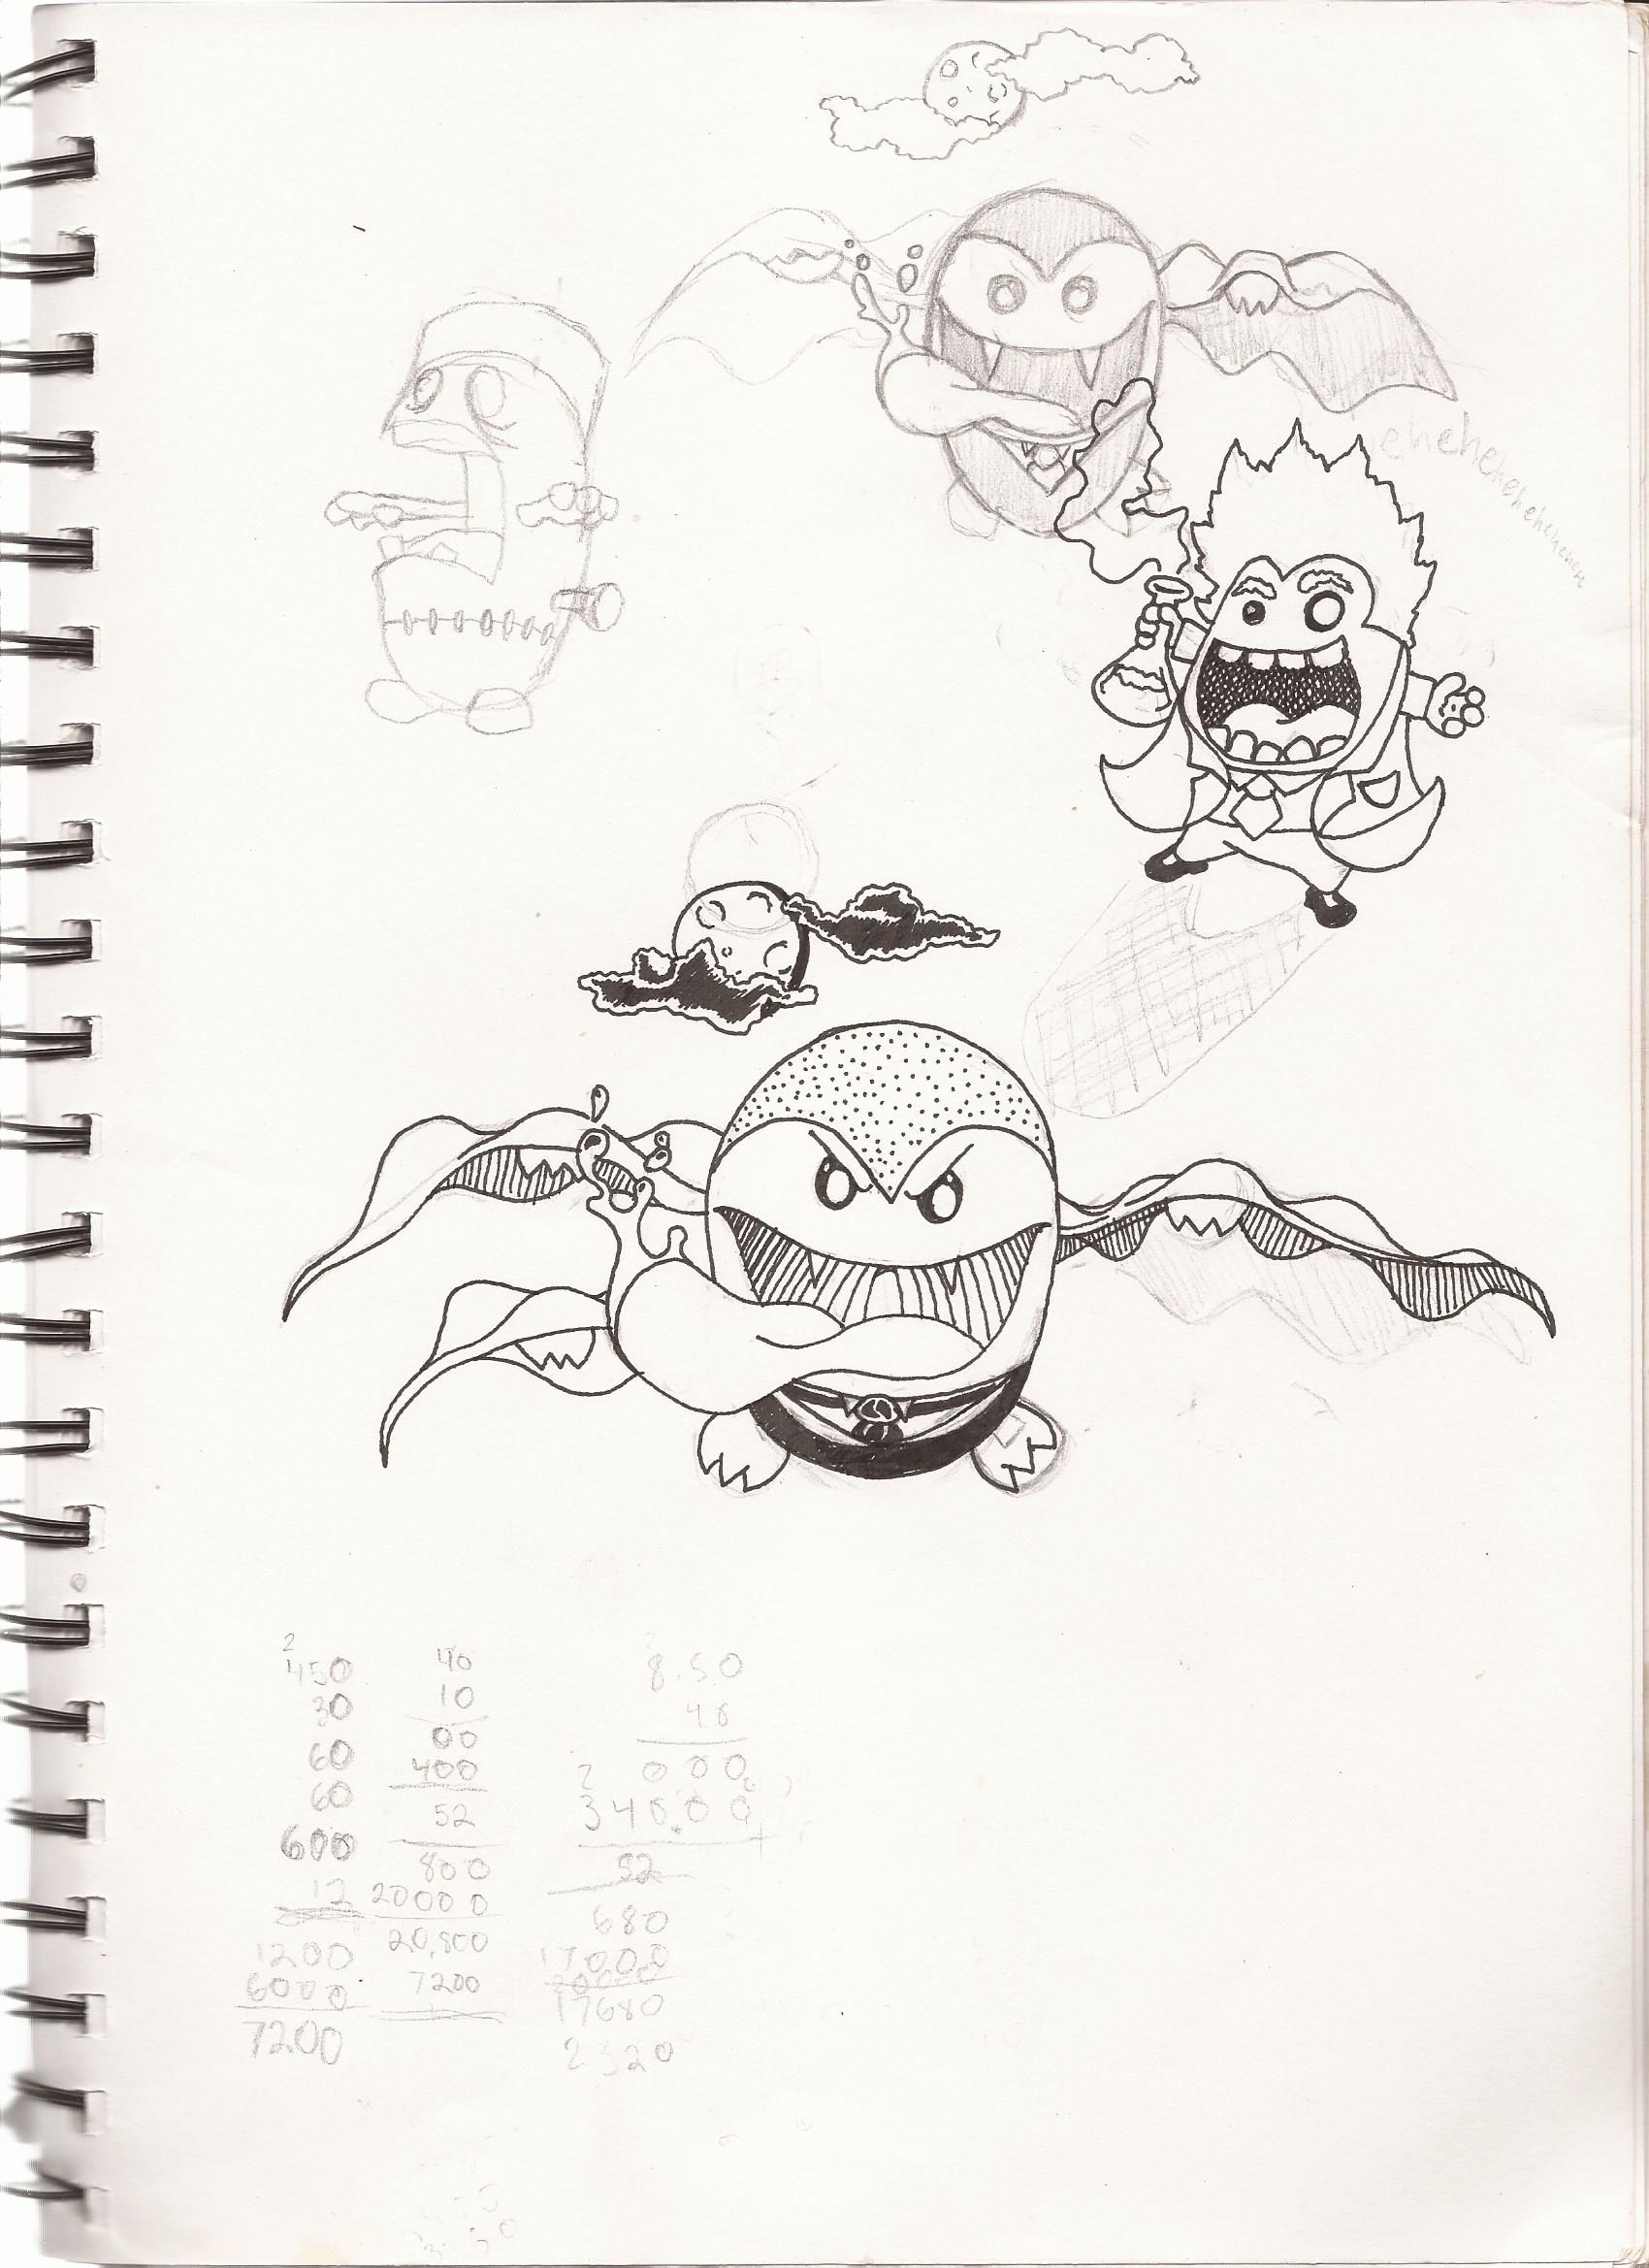 ehehehehehehehehehe
2
450
30
60
60
600
12
1200
6000
7200
40
10
00
400
52
800
20000
20,800
7200
8.50
40
000
340.00
52
680
17000
17680
2320